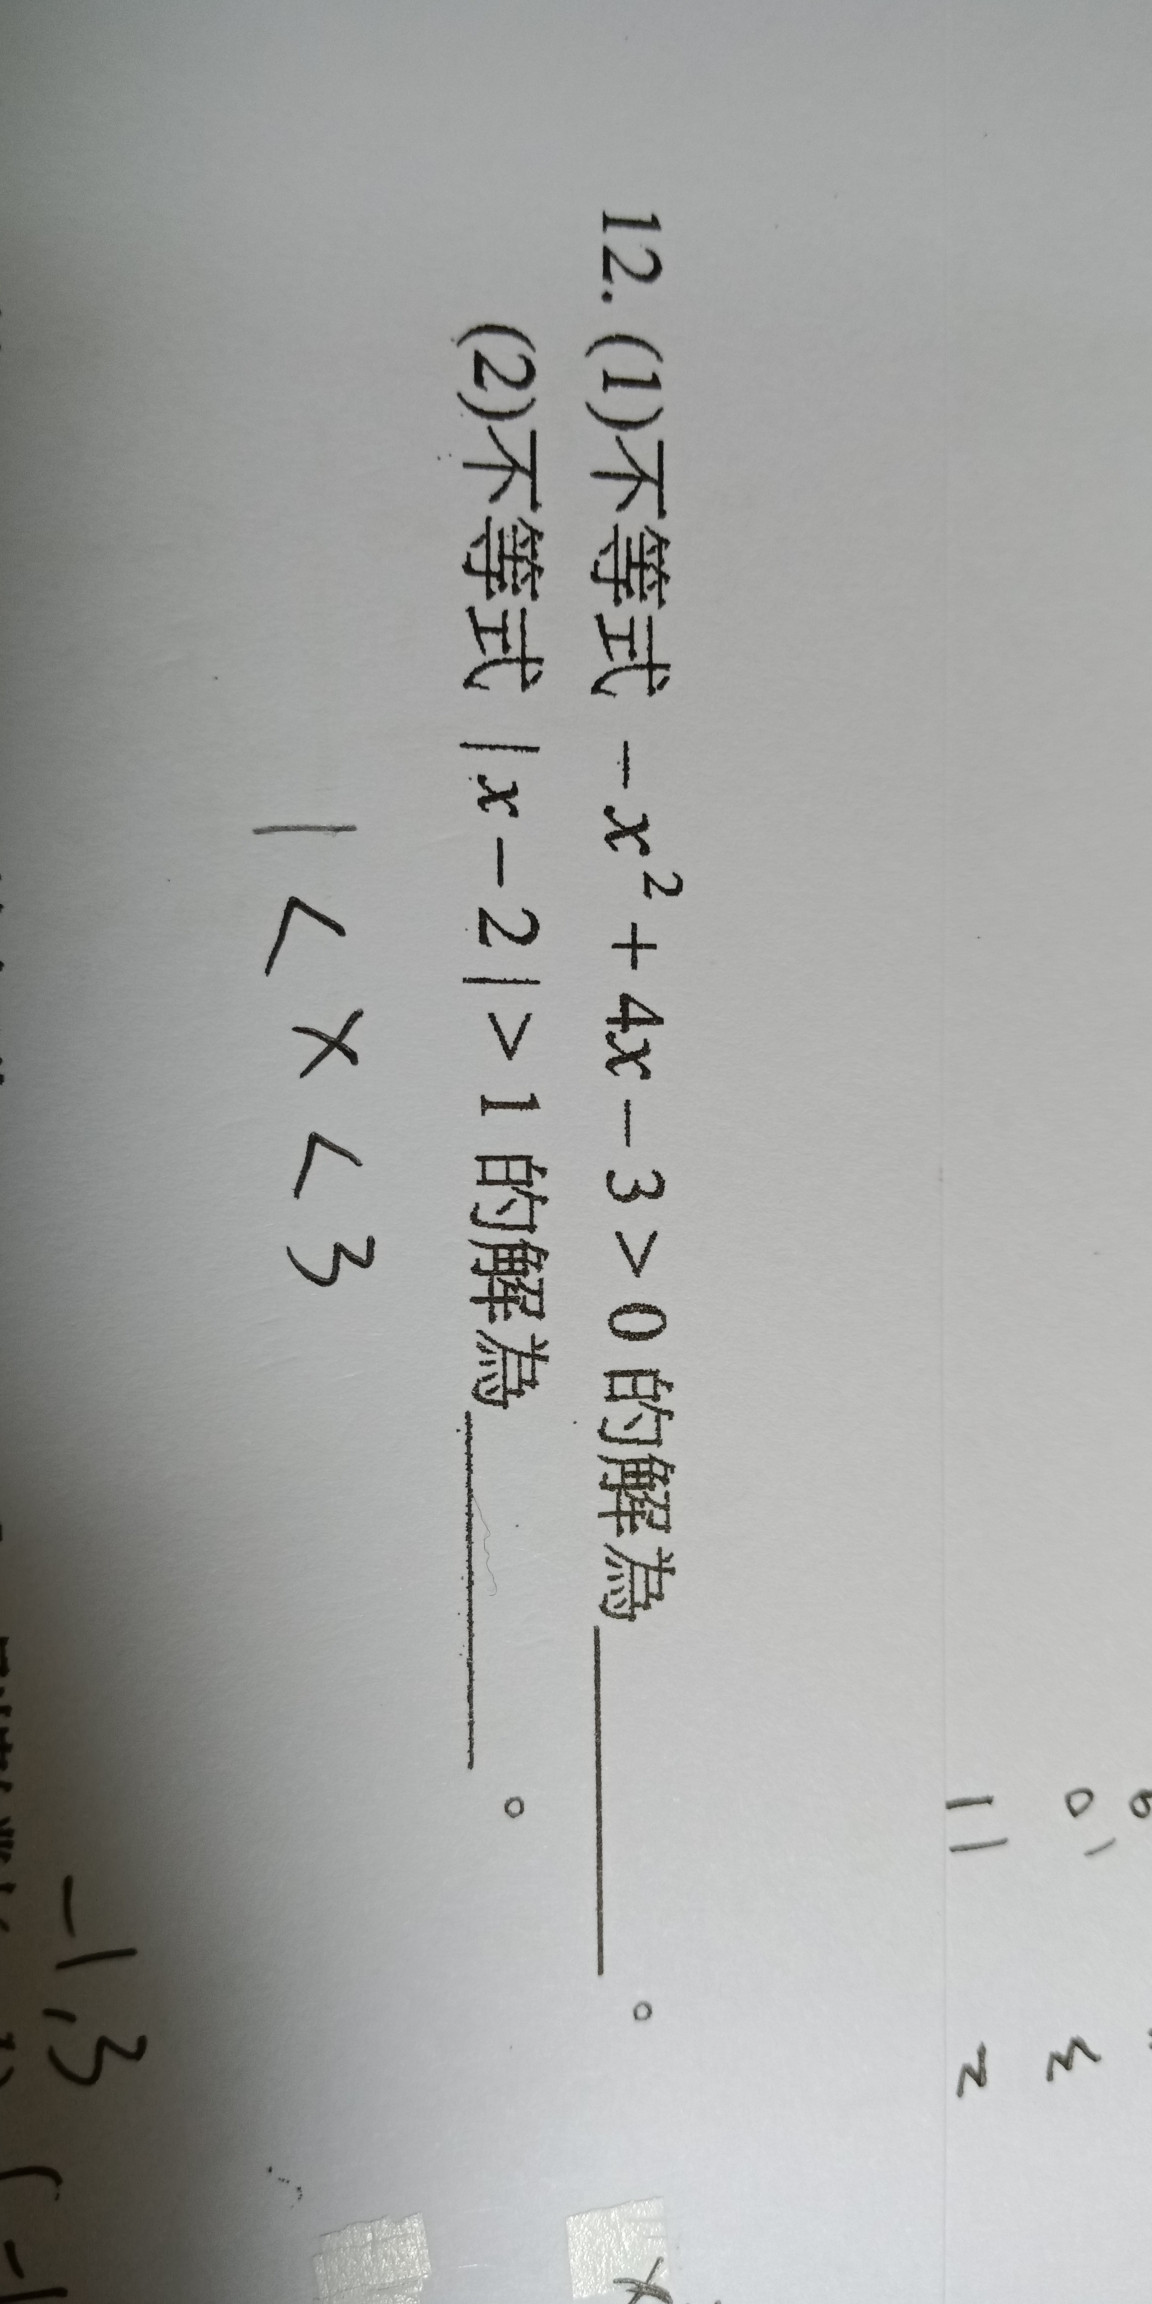 12. (1)不等式 -x²+4x-3>0 的解為________。
(2)不等式 |x-2|>1 的解為________。
1<x<3
-1,3